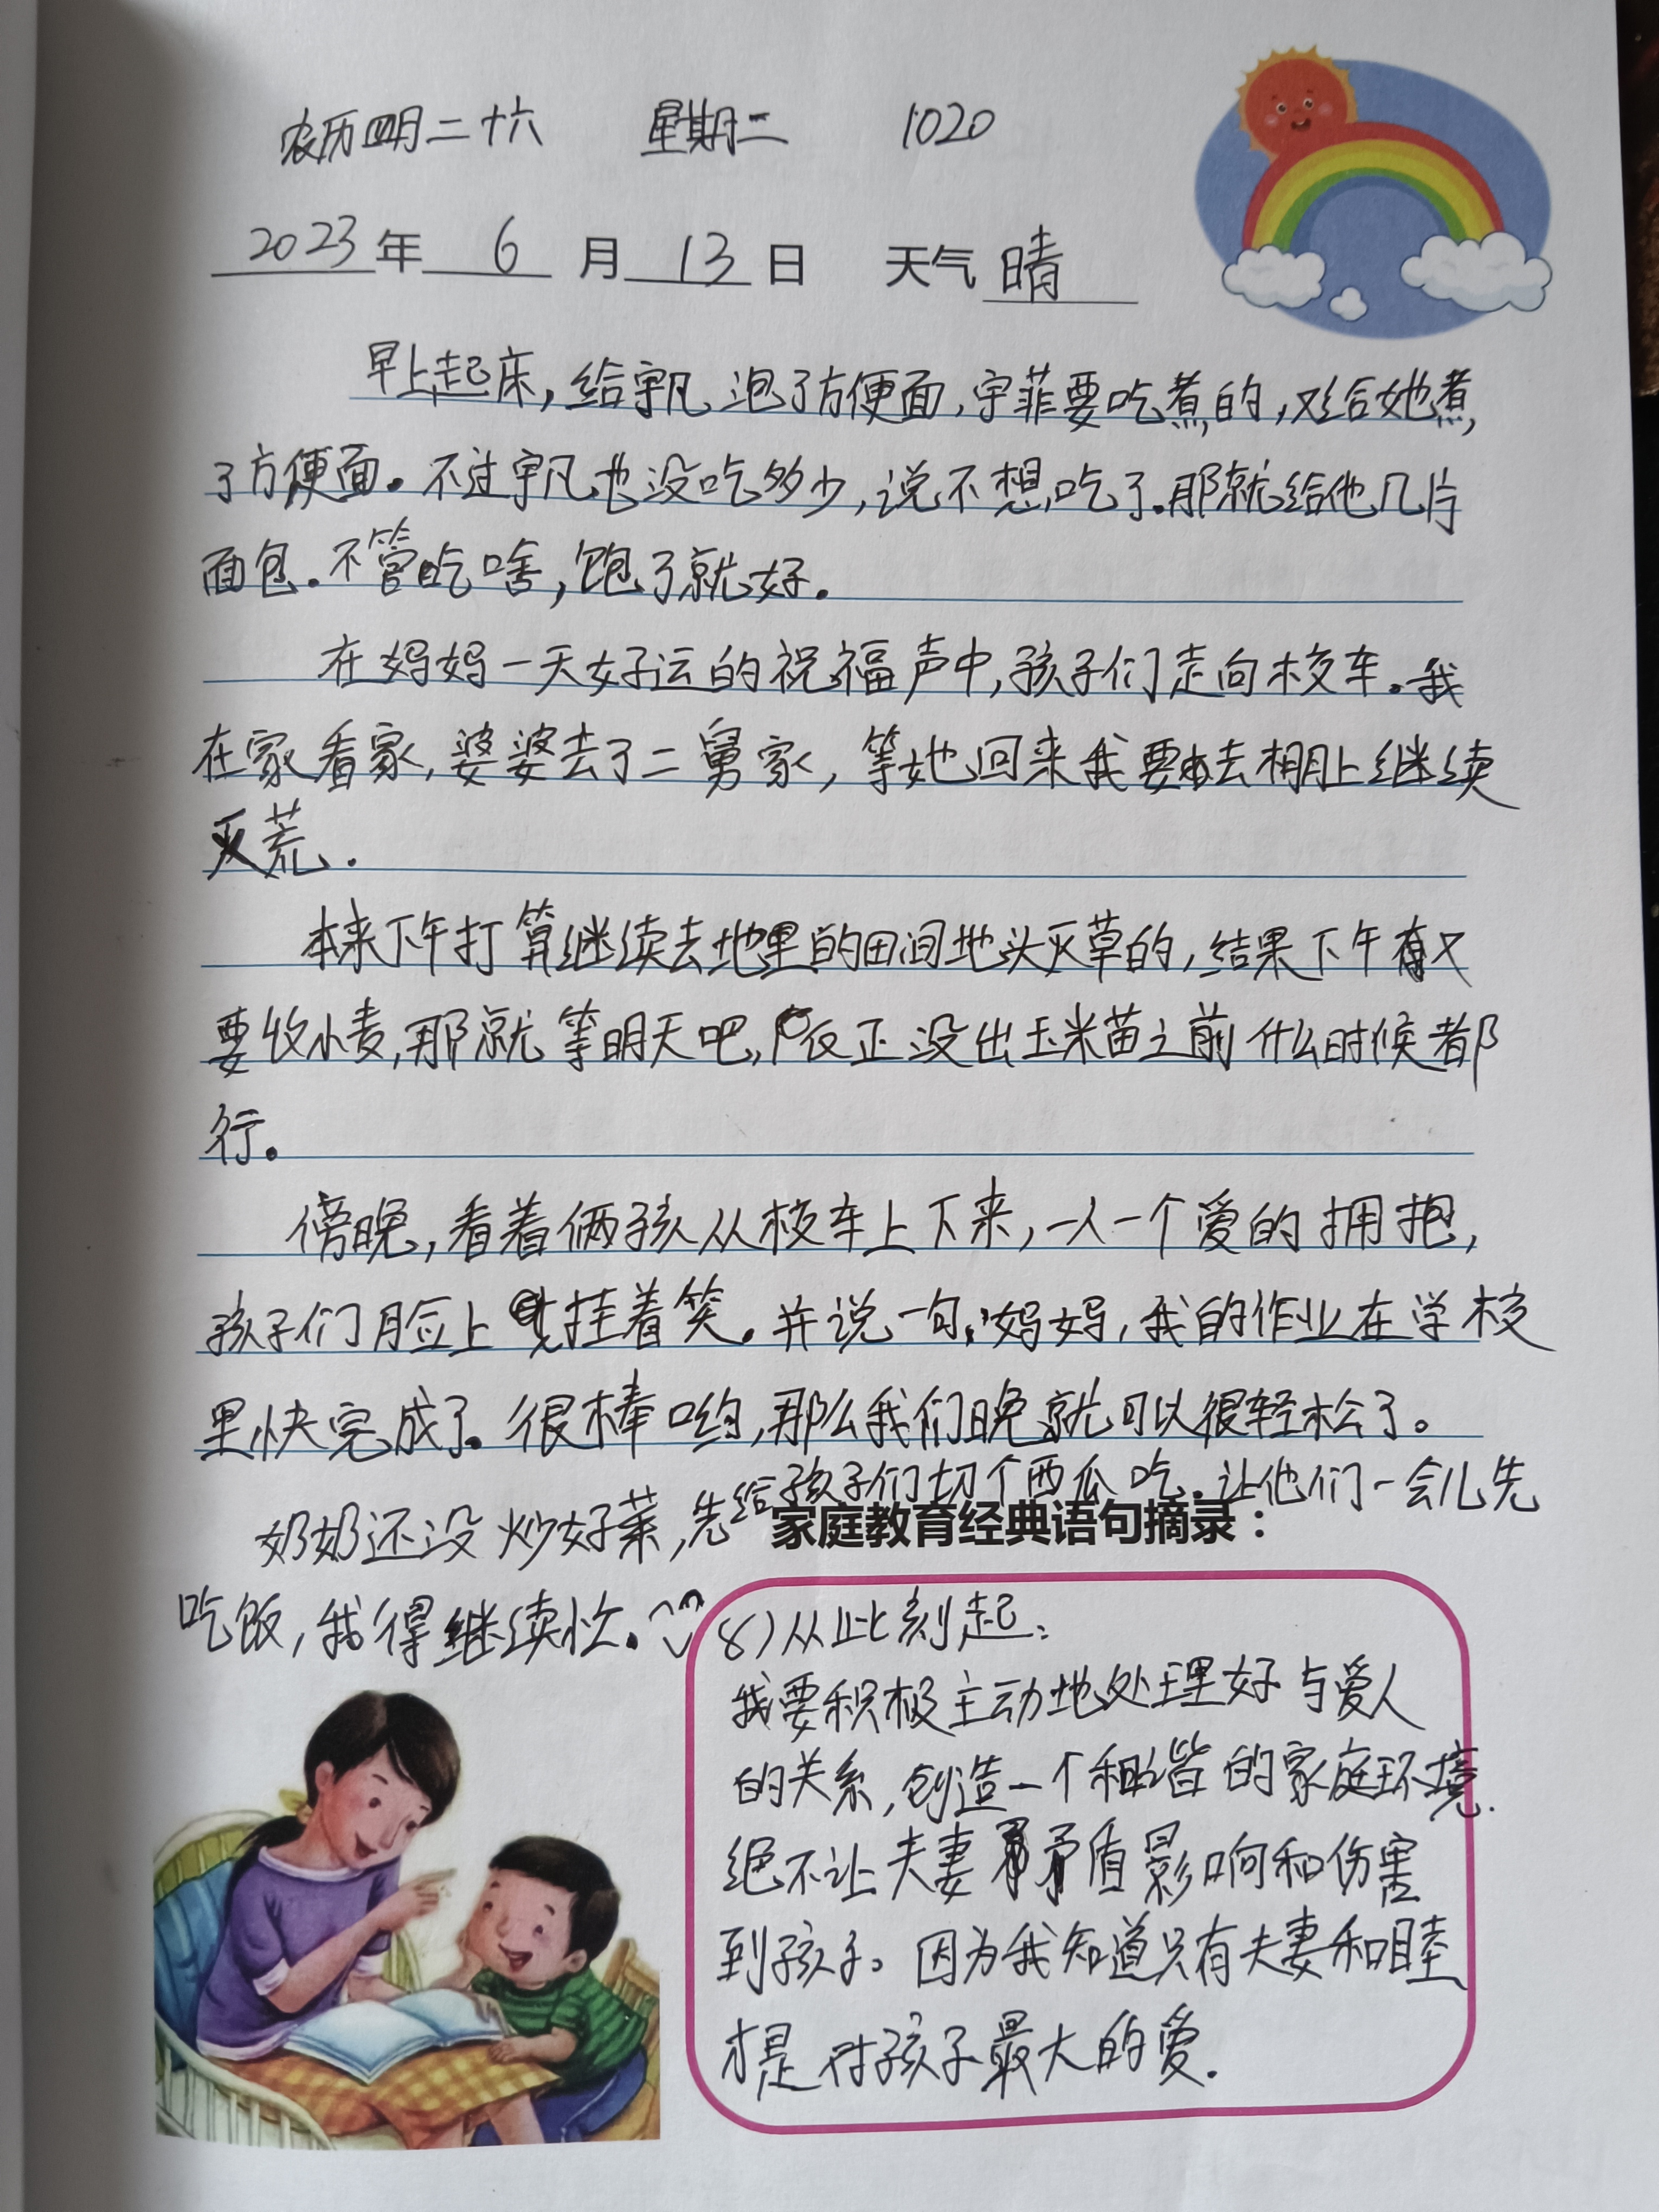 农历四月二十六 星期二 1020
2023年 6 月 13 日 天气 晴
早上起床，给宇凡泡了方便面，宇菲要吃煮的，又给她煮
了方便面。不过宇凡也没吃多少，说不想吃了。那就给他几片
面包。不管吃啥，饱了就好。
在妈妈一天好运的祝福声中，孩子们走向校车。我
在家看家，婆婆去了二舅家，等她回来我要去棚上继续
灭荒.
本来下午打算继续去地里的田间地头灭草的，结果下午又
要收小麦，那就等明天吧，反正没出玉米苗之前什么时候都
行。
傍晚，看着俩孩从校车上下来，一人一个爱的拥抱，
孩子们脸上挂着笑。并说一句：妈妈，我的作业在学校
里快完成了。很棒哟，那么我们晚就可以很轻松了。
奶奶还没炒好菜，先给孩子们切个西瓜吃.让他们一会儿先
吃饭，我得继续忙.
家庭教育经典语句摘录：
8）从此刻起：
我要积极主动地处理好与爱人
的关系，创造一个和谐的家庭环境.
绝不让夫妻矛盾影响和伤害
到孩子。因为我知道只有夫妻和睦
才是对孩子最大的爱.